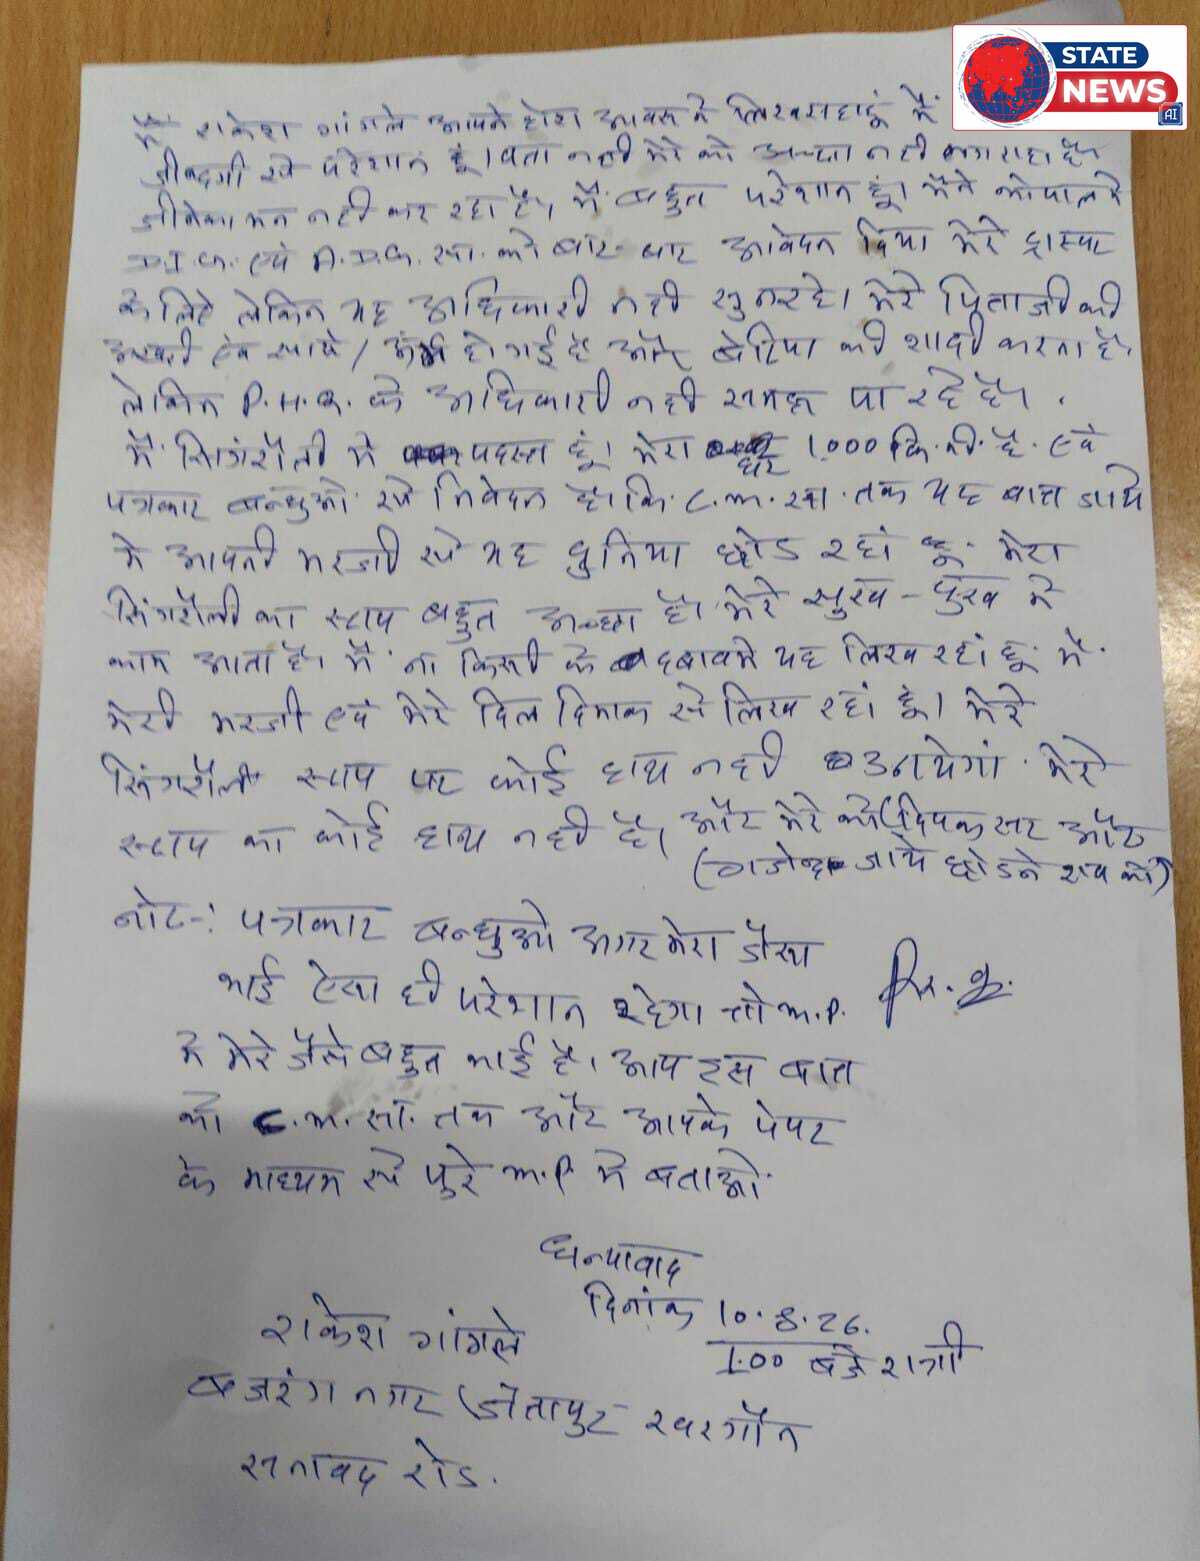 STATE
NEWS
AI
मैं राकेश गांगले आपने होश आवस मे लिख रहा हूं मैं
जीन्दगी से परेशान हूं। पता नही मेरे को अच्छा नही लग रहा है।
जीनेका मन नही कर रहा है। मैं बहुत परेशान हूं। मैंने भोपाल मे
एवं A.D.G. सा. को बार-बार आवेदन दिया मेरे ट्रास्फर
के लिऐ लेकिन यह अधिकारी नही सुन रहे। मेरे पिताजी की
हो गई है और बेटिया की शादी करना है।
लेकिन P.H.Q. के अधिकारी नही समझ पा रहे है।
मैं सिंगरौली मे पदस्त हूं। मेरा घर 1.000 कि.मी. है. एवं
पत्रकार बन्धुओ से निवेदन है। कि. C.M. सा. तक यह बात जाये
मे आपनी मरजी से यह दुनिया छोड रहां हू. मेरा
सिंगरौली का स्टाप बहुत अच्छा है। मेरे सुख-दुख मे
काम आता है। मैं ना किसी के दबाव मे यह लिख रहां हूं मैं.
मेरी मरजी एवं मेरे दिल दिमाक से लिख रहां हूं। मेरे
सिंगरौली स्टाप पर कोई हाथ नही उठायेगां. मेरे
स्टाप का कोई हाथ नही है। और मेरे को (दिपक सर और
(गजेन्द्र जाये छोडने शव को)
नोट-: पत्रकार बन्धुओ अगर मेरा जैसा
भाई ऐसा ही परेशान रहेगा तो M.P.
मे मेरे जैसे बहुत भाई है। आप इस बात
को C.M. सा. तक और आपके पेपर
के माध्यम से पुरे M.P. मे बताओ.
धन्यावाद
दिनांक 10.8.26.
1.00 बजे रात्री
राकेश गांगले
बजरंग नगर (जेतापुर खरगौन
सनावद रोड.